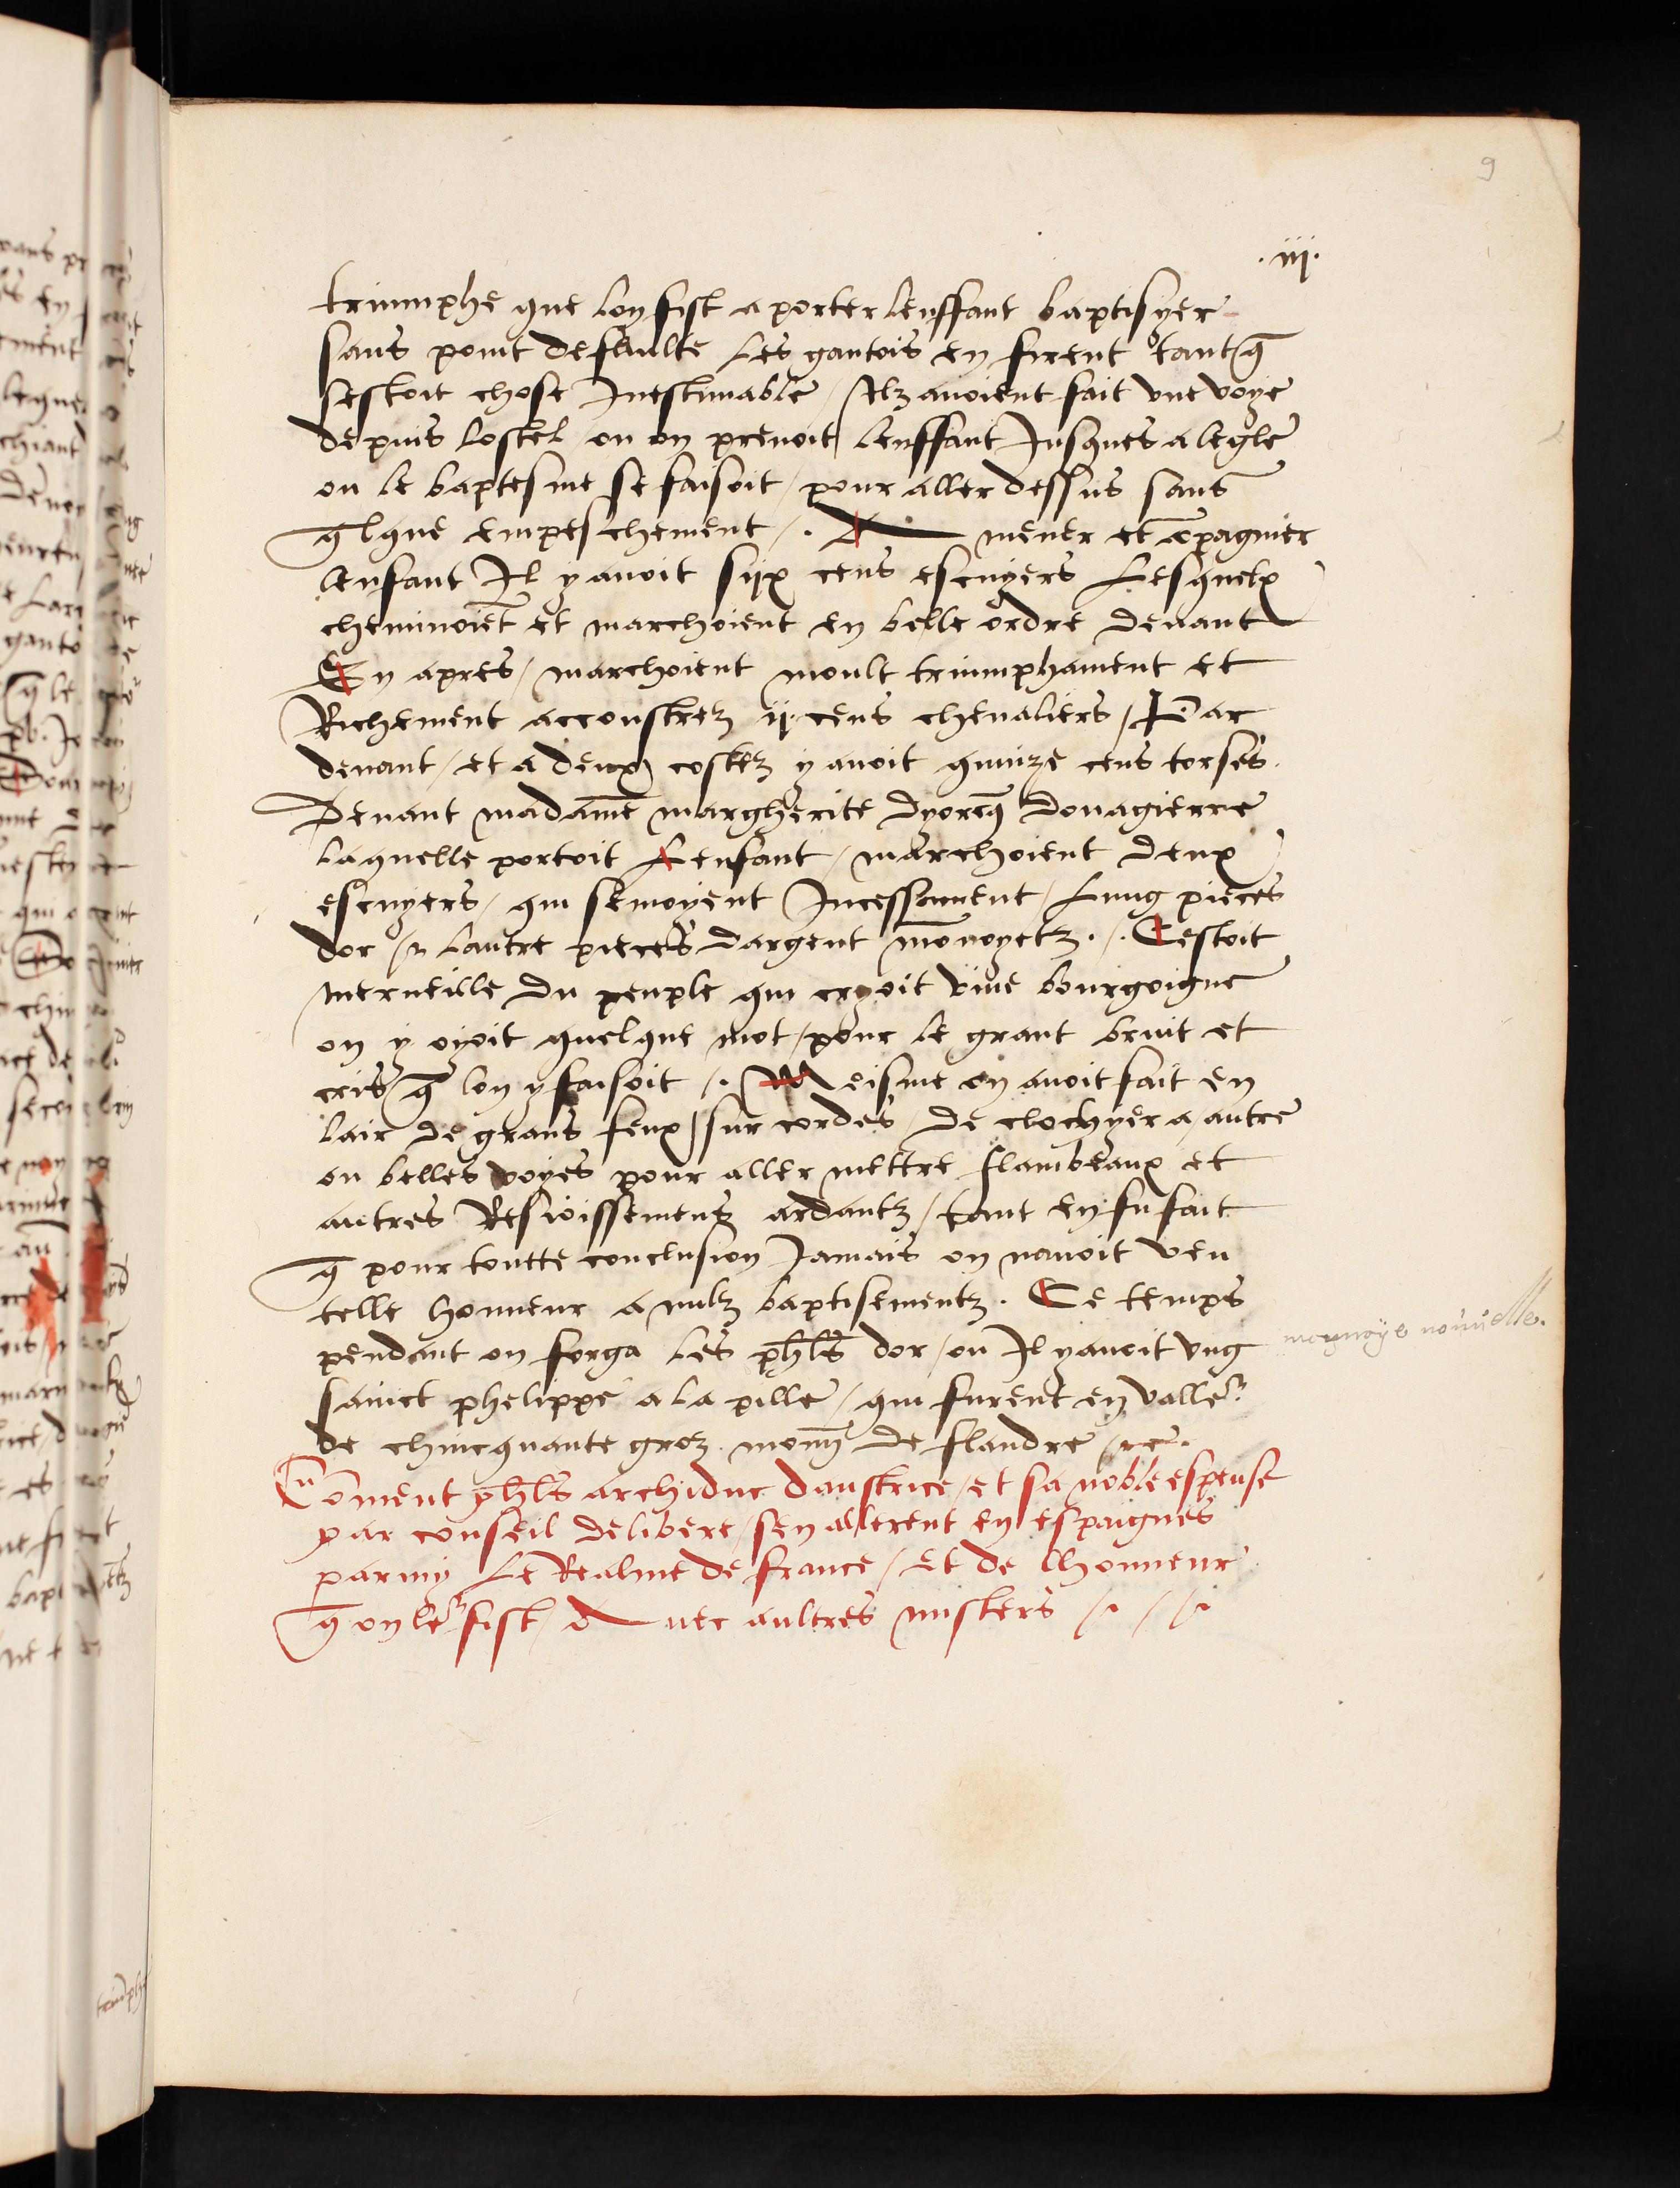 9
.iij.
triumphe que lon fist a porter lenffant baptisyer
sans point defaulte Les gantois en firent tant q̄
sestoit chose Inestimable / Ilz auoient fait vne voye
depuis lostel / ou on prenoit lenffant Iusques a leg̃le
ou le baptesme se faisoit / pour aller dessus sans
q̄lque empeschement /. A mener et c̄opagnier
lenfant Il y auoit siix cens escuyers Lesquelx
cheminoiẽt et marchoient en belle ordre deuant
En apres / marchoient moult triumphament et
Richement accoustrez ij. cens cheualiers / Par
deuant / et a deux costez y auoit quinze cens torses.
Deuant madame margherite dyorcq douagierre
laquelle portoit Lenfant / marchoient deux
escuyers / qui semoyent Incessamment / Lung pieces
dor / et lautre pieces dargent mōnoyetz . /. Cestoit
merueille du peuple qui cryoit viue bourgoigne
on y oyoit quelque mot / pour le grant bruit et
cris q̄ lon y faisoit /. Meisme on auoit fait en
lair de grans feux / sur cordes / de clochyer a / autre
ou belles voyes pour aller mettre flambeaux et
autres Resioissementz ardantz / tant en fu fait
q̄ pour toutte conclusion Iamais on nauoit veu
telle honneur a nulz baptisementz . Ce temps
pendant on forga les ph̄les dor / ou Il y auoit vng
monnoye nouuelle.
sainct phelippe a la pille / qui furent en valleʳ
de chincquante groz . monn̄ de flandre / rc̄.
Cōment ph̄ls archiduc daustrice / et sa noble espeuse
par conseil delibere / sen allerent en espaignes
parmy Le Realme de france / et de lhonneur
q̄ on leʳ fist / Auec aultres misters /. / /.